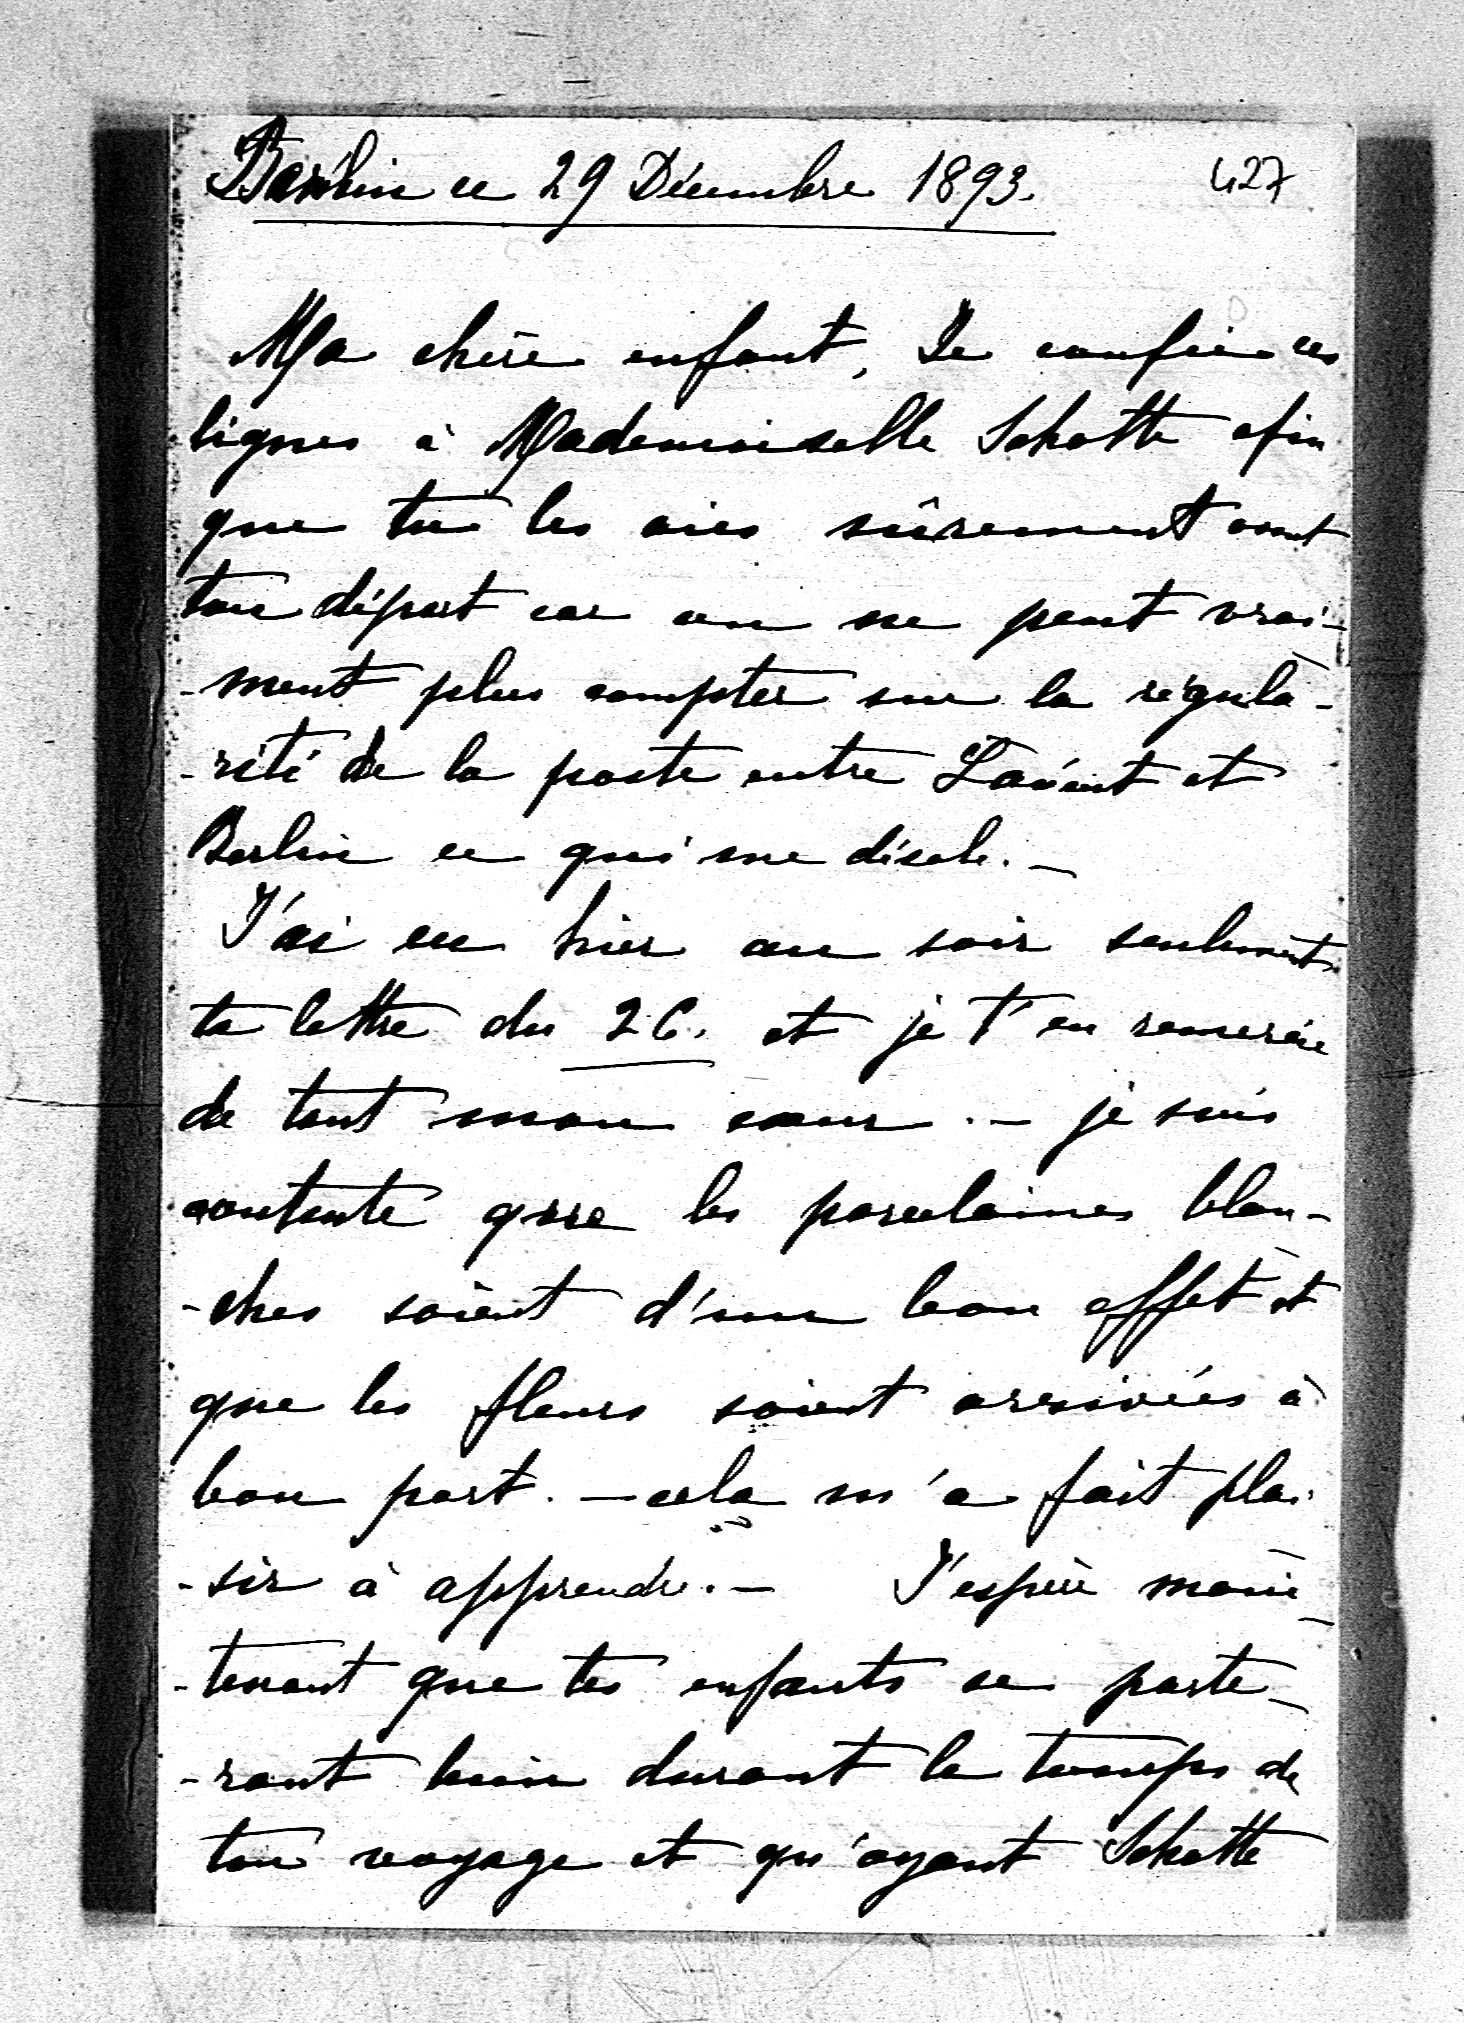 Berlin ce 29 Décembre 1893. 427
Ma chère enfant, Je confie ces
lignes à Mademoiselle Schotte afin
que tu les aies sûrement avant
ton départ car on ne peut vrai-
-ment plus compter sur la régula-
-rité de la poste entre et
Berlin ce qui me désole. —
J'ai eu hier au soir seulement
ta lettre du 26. et je t'en remercie
de tout mon cœur. — je suis
contente que les porcelaines blan-
-ches soient d'un bon effet et
que les fleurs soient arrivées à
bon port. — cela m'a fait plai-
-sir à apprendre. — J'espère main-
-tenant que tes enfants se porte-
-ront bien durant le temps de
ton voyage et qu'ayant Schotte